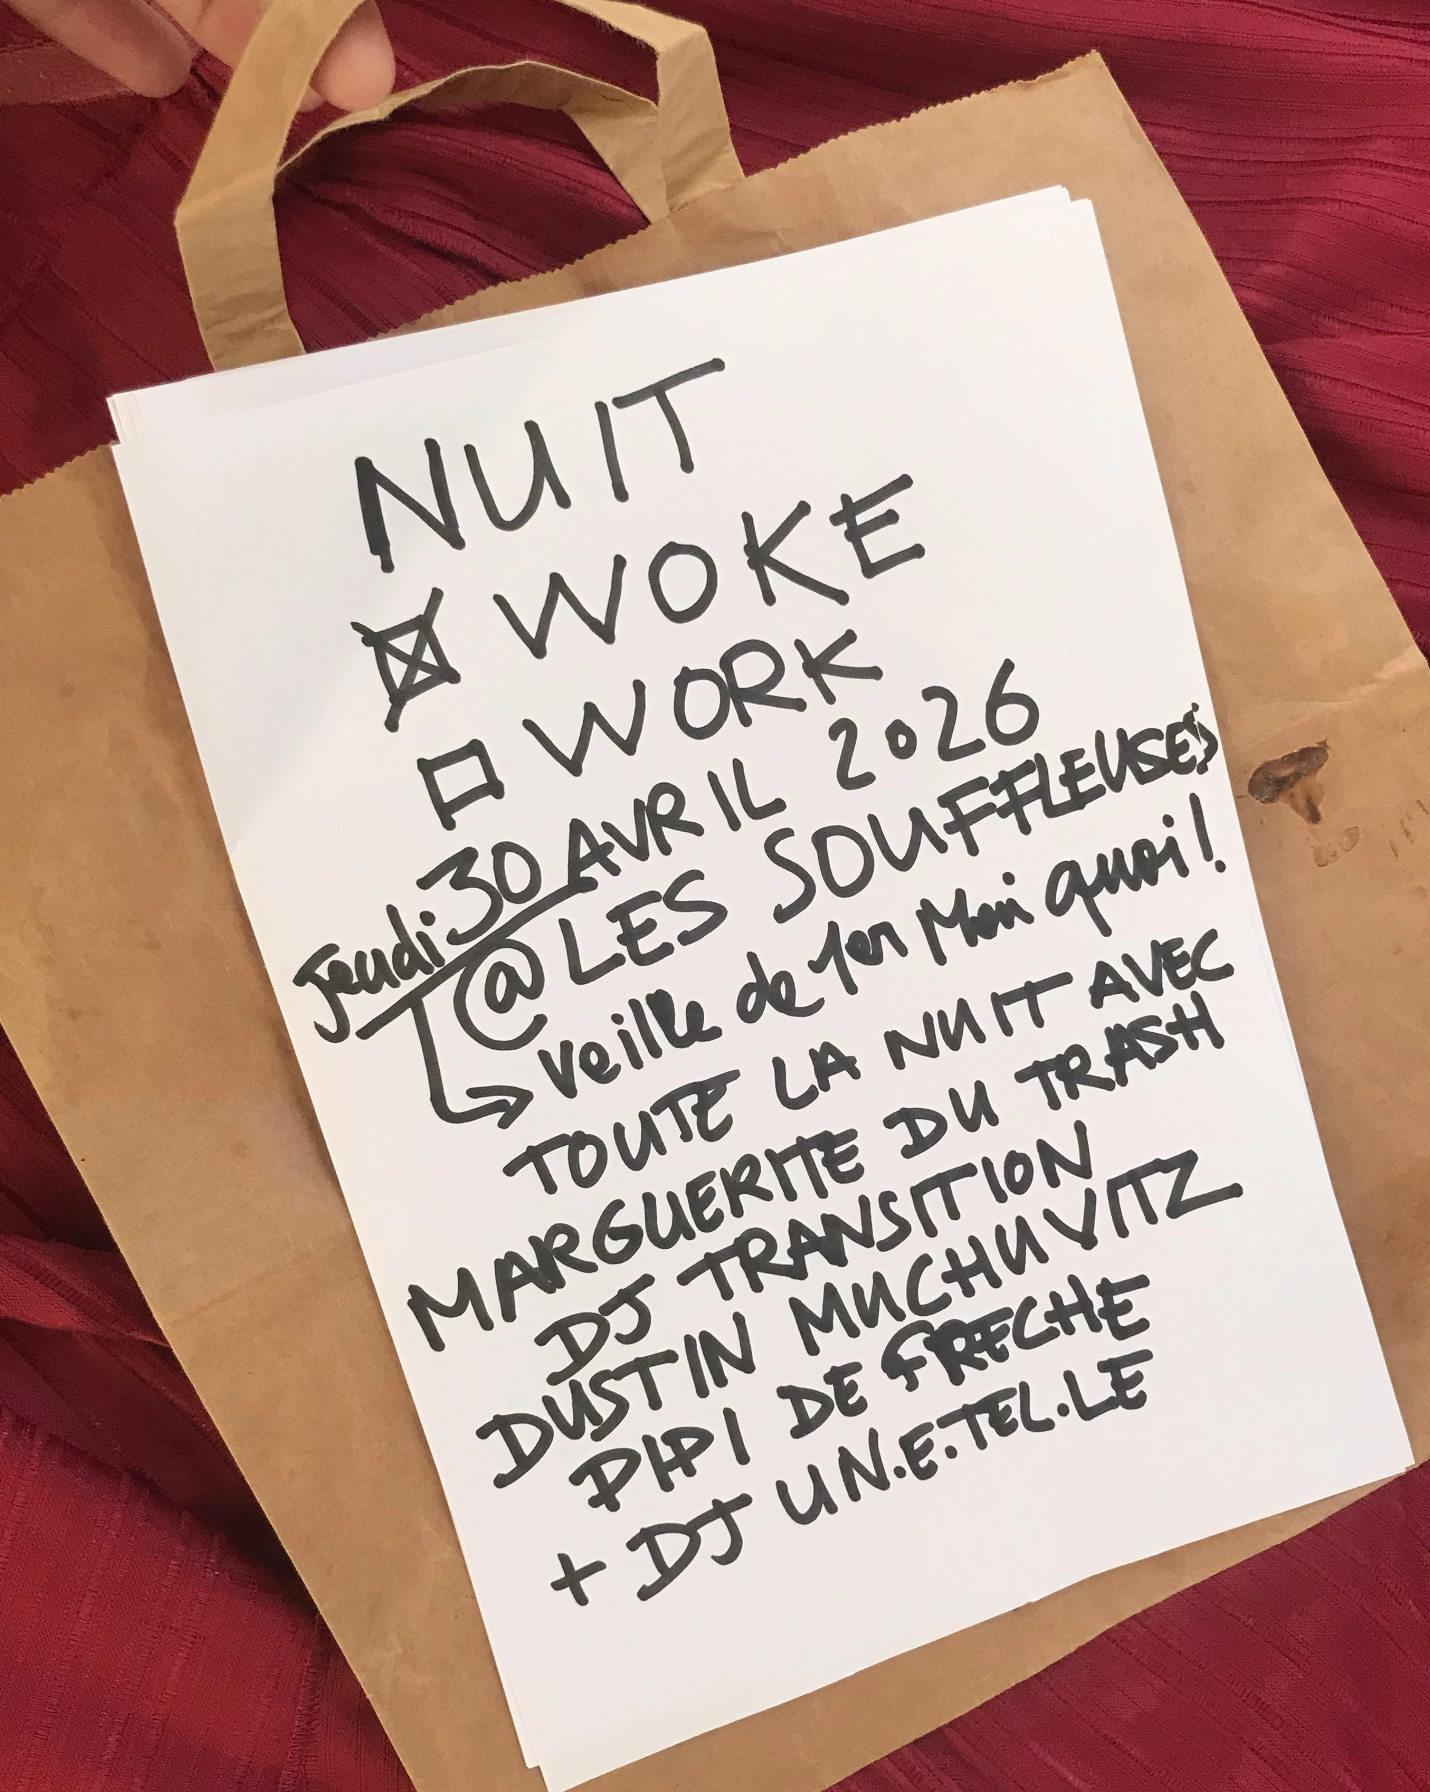 NUIT
☒ WOKE
☐ WORK
Jeudi 30 AVRIL 2026
@ LES SOUFFLEUSES
→ Veille de 1er Mai quoi !
TOUTE LA NUIT AVEC
MARGUERITE DU TRASH
DJ TRANSITION
DUSTIN MUCHUVITZ
PIPI DE FRECHE
+ DJ UN.E.TEL.LE